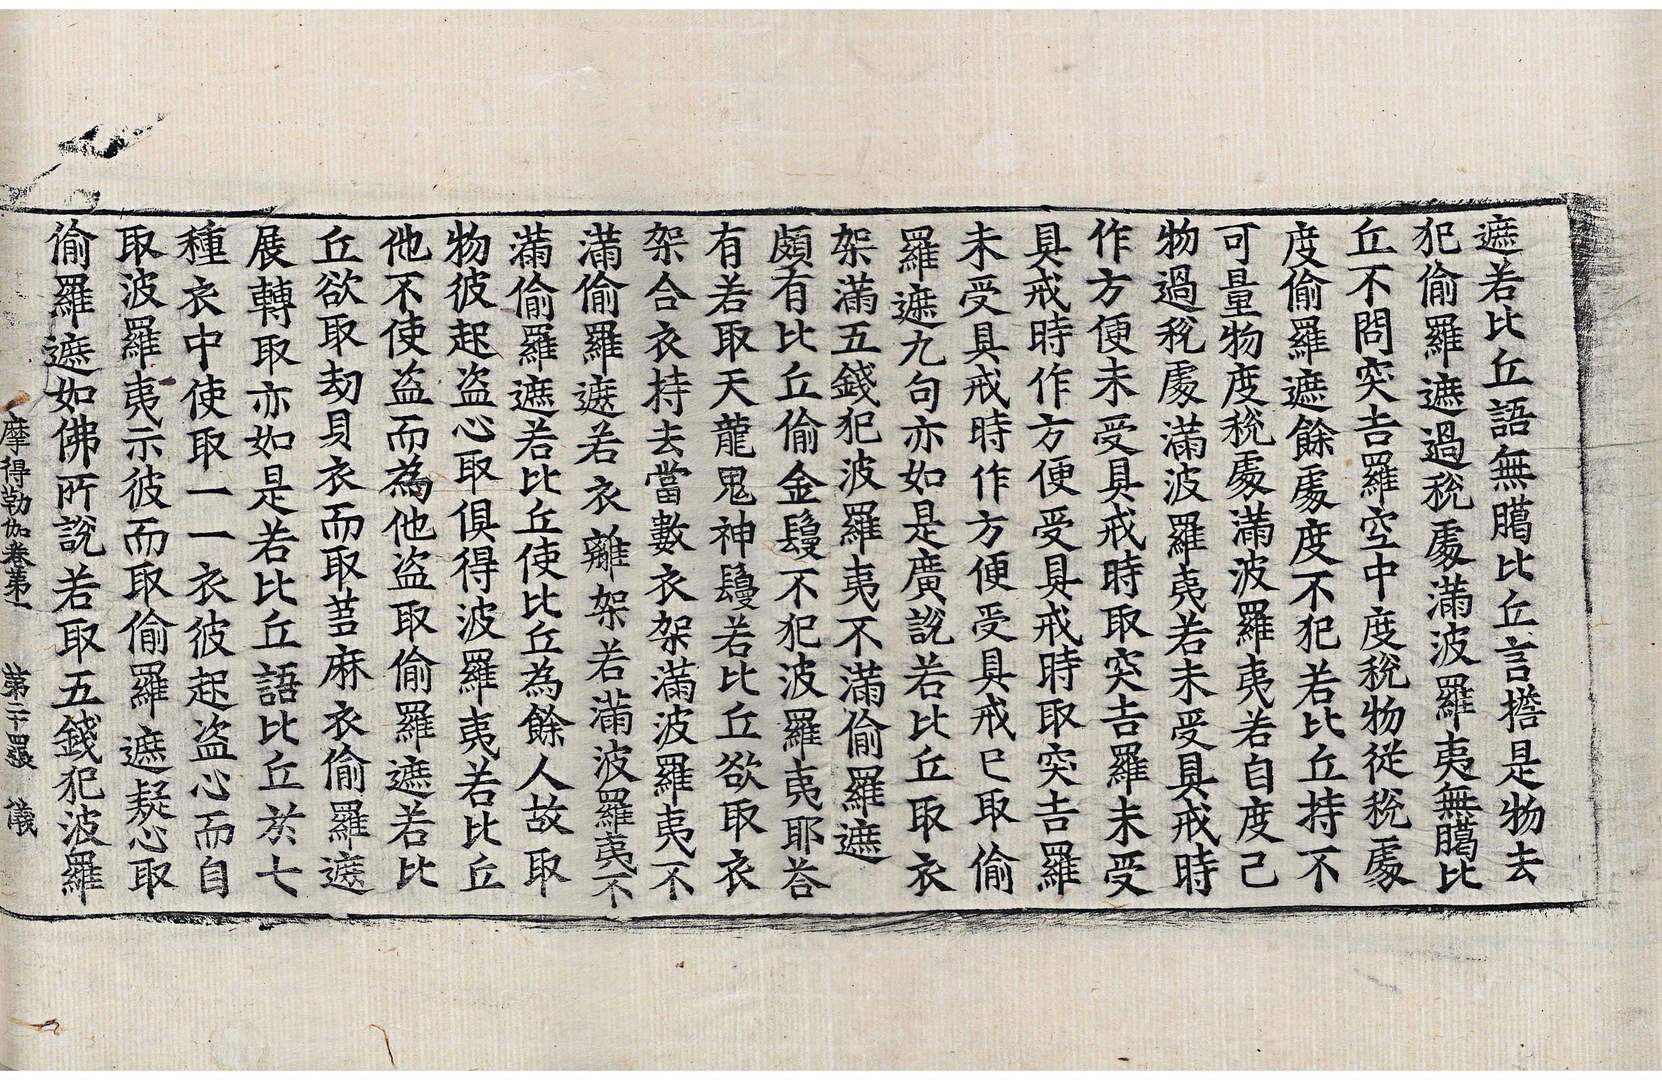 遮若比丘語無臈比丘言擔是物去
犯偷羅遮過稅處滿波羅夷無臈比
丘不問突吉羅空中度稅物從稅處
度偷羅遮餘處度不犯若比丘持不
可量物度稅處滿波羅夷若自度己
物過稅處滿波羅夷若未受具戒時
作方便未受具戒時取突吉羅未受
具戒時作方便受具戒時取突吉羅
未受具戒時作方便受具戒已取偷
羅遮九句亦如是廣說若比丘取衣
架滿五錢犯波羅夷不滿偷羅遮
頗有比丘偷金鬘不犯波羅夷耶荅
有若取天龍鬼神鬘若比丘欲取衣
架合衣持去當數衣架滿波羅夷不
滿偷羅遮若衣離架若滿波羅夷不
滿偷羅遮若比丘使比丘為餘人故取
物彼起盜心取俱得波羅夷若比丘
他不使盜而為他盜取偷羅遮若比
丘欲取劫貝衣而取芻麻衣偷羅遮
展轉取亦如是若比丘語比丘於七
種衣中使取一一衣彼起盜心而自
取波羅夷示彼而取偷羅遮疑心取
偷羅遮如佛所說若取五錢犯波羅
摩得勒伽卷第一 第二十四張 儀